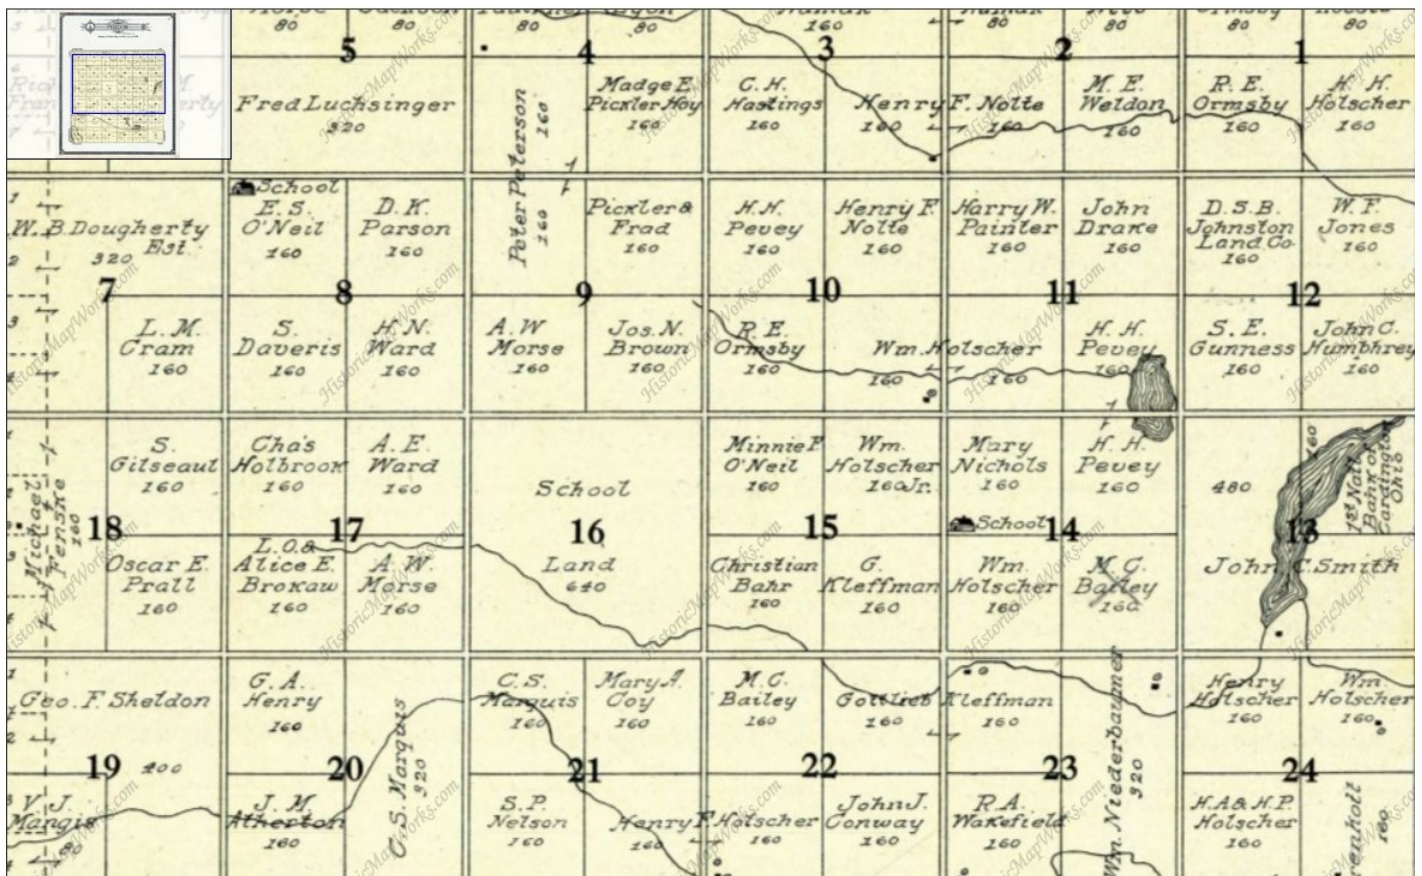 80
80
80
80
160
80
80
80
80
5
4
3
2
1
Fred Luchsinger
320
Peter Peterson
160
160
Madge E.
Pickler Hoy
160
C. H.
Hastings
160
Henry F. Nolte
160
160
M. E.
Weldon
160
R. E.
Ormsby
160
H. H.
Holscher
160
W. B. Dougherty
Est.
320
School
E. S.
O'Neil
160
D. K.
Parson
160
Pickler &
Frad
160
H. H.
Pevey
160
Henry F.
Nolte
160
Harry W.
Painter
160
John
Drake
160
D. S. B.
Johnston
Land Co.
160
W. F.
Jones
160
7
8
9
10
11
12
L. M.
Cram
160
S.
Daveris
160
H. N.
Ward
160
A. W
Morse
160
Jos. N.
Brown
160
R. E.
Ormsby
160
Wm. Holscher
160
160
H. H.
Pevey
160
S. E.
Gunness
160
John C.
Humphrey
160
Michael
Fenske
160
S.
Gilseaul
160
Cha's
Holbrook
160
A. E.
Ward
160
School
Land
640
Minnie F
O'Neil
160
Wm.
Holscher
Jr.
160
Mary
Nichols
160
H. H.
Pevey
160
480
160
1st Natl
Bank of
Cardington
Ohio
18
17
16
15
14
13
School
Oscar E.
Prall
160
L. O. &
Alice E.
Brokaw
160
A. W.
Morse
160
Christian
Bahr
160
G.
Kleffman
160
Wm.
Holscher
160
M. C.
Bailey
160
John C. Smith
Geo. F. Sheldon
400
G. A.
Henry
160
C. S. Marquis
320
C. S.
Marquis
160
Mary A.
Coy
160
M. C.
Bailey
160
Gottlieb Kleffman
160
160
Wm. Niederbaumer
320
Henry
Holscher
160
Wm.
Holscher
160
19
20
21
22
23
24
V. J.
Mangis
80
J. M.
Atherton
160
S. P.
Nelson
160
Henry F. Holscher
160
160
John J.
Conway
160
R. A.
Wakefield
160
H. A & H. P.
Holscher
160
160
HistoricMapWorks.com